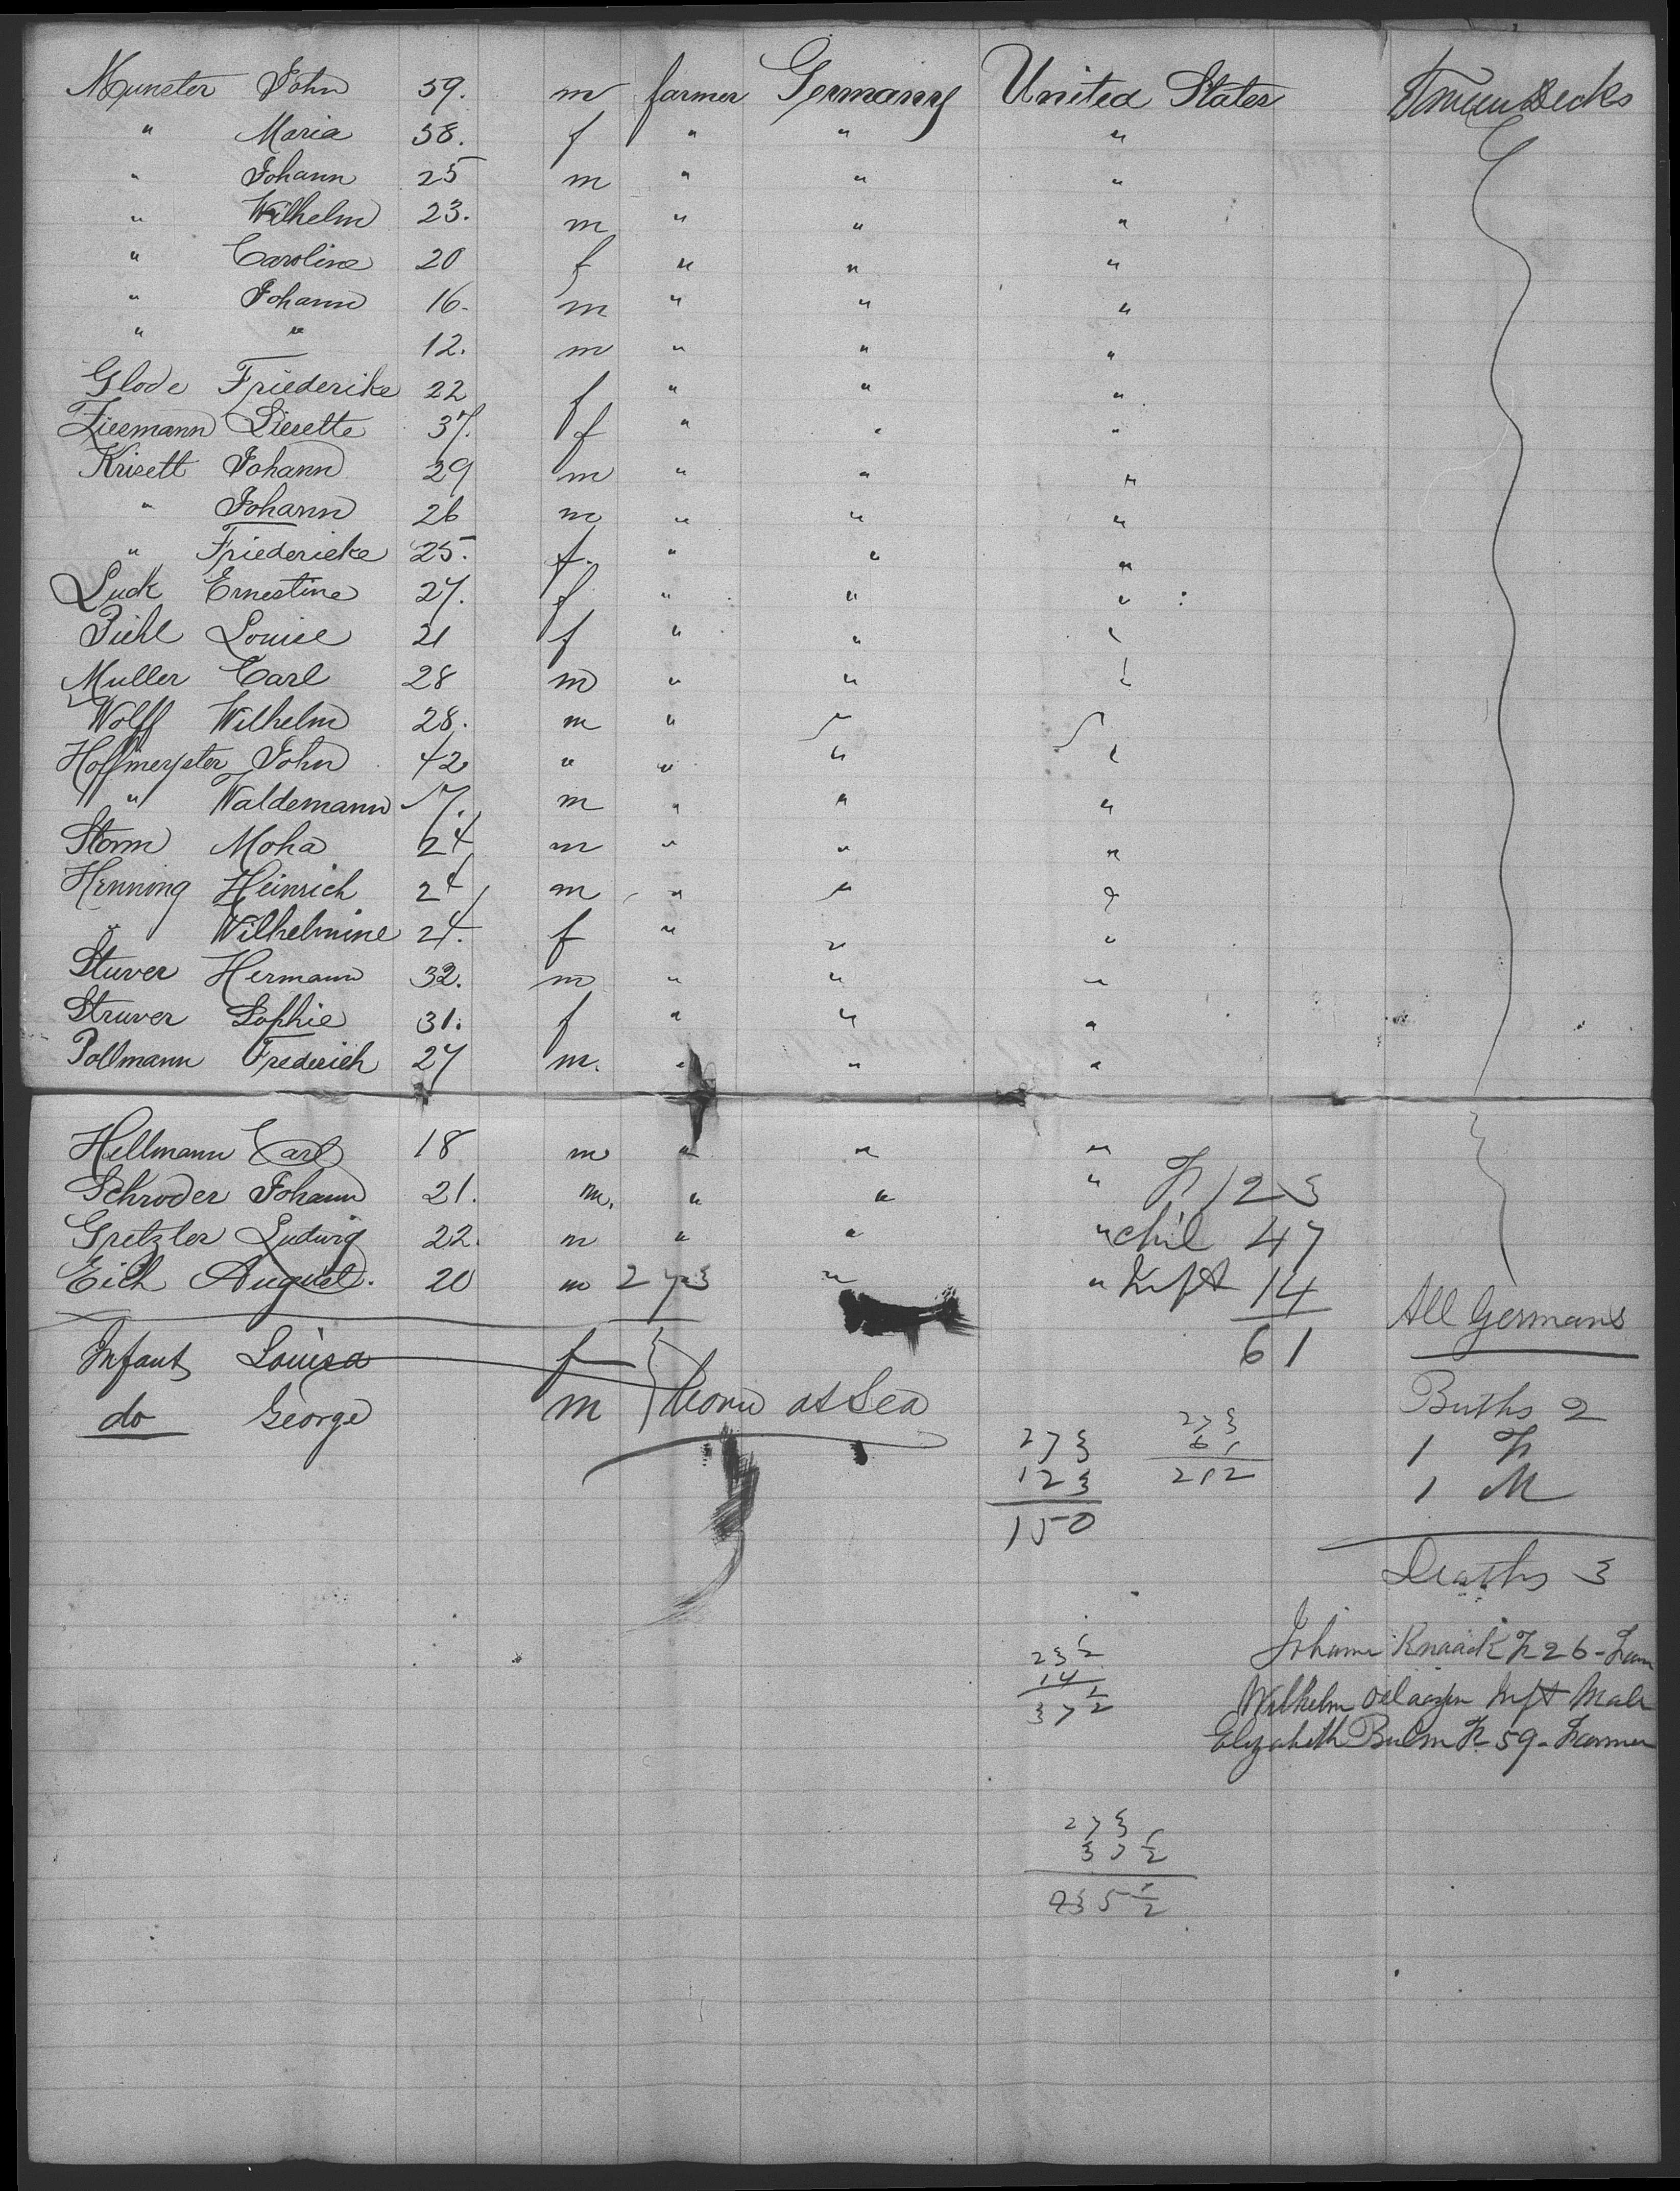 Munster John 59. m farmer Germany United States Tween Decks
" Maria 58. f " " "
" Johann 25 m " " "
" Wilhelm 23. m " " "
" Caroline 20 f " " "
" Johann 16. m " " "
" " 12. m " " "
Glode Friederike 22 f " " "
Ziesmann Lisette 37. f " " "
Krisett Johann 29 m " " "
" Johann 26 m " " "
" Friedericke 25. f. " " "
Luck Ernestine 27. f " " "
Piehl Louise 21 f " "
Muller Carl 28 m " "
Wolff Wilhelm 28. m "
Hoffmeyster John 42 " " "
" Waldemann 17. m " " "
Storm Moha 24 m " " "
Henning Heinrich 24 m " " "
" Wilhelmine 24. f " " "
Stuver Hermann 32. m " " "
Struver Sophie 31. f " " "
Pollmann Frederich 27 m. " " "
Hellmann Carl 18 m " " "
Schroder Johann 21. m. " " " F 123
Gretzler Ludwig 22. m " " " chil 47
Eich August. 20 m 273 " " Inft 14
61 All Germans
Infant Louisa f
do George m } born at Sea
Births 2
1 F
1 M
273
123
150
273
61
212
Deaths 3
23 1/2
14
37 1/2
Johanna Knaack F 26 - Farm
Wilhelm Inft Male
Elizabeth F 59 - Farmer
273
37 1/2
235 1/2